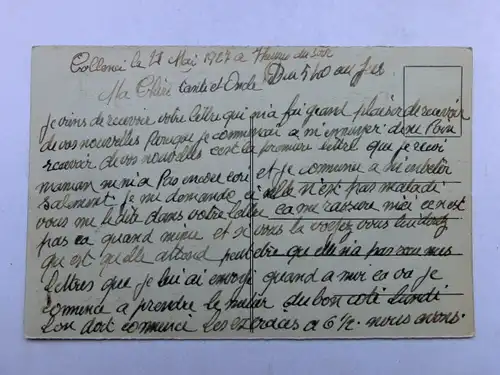 le 21 Mai 1927 a heures du soir
Ma Chère tante et Oncle Du 5 au
je viens de recevoir votre lettre qui m'a fai grand plaisir de recevoir
de vos nouvelles parque je commençai a m'ennuyer de ne Rien
recevoir de vos nouvelles c'est la premiere lettre que je recoi
maman ne m'a pas encore écri et je commence a m'embeter
salement je me demande si elle n'est pas malade
vous me le dite dans votre lettre ca me rassure mai ce n'est
pas ca quand meme et si vous la voyez vous lui direz
que est qu'elle attend peut etre que elle n'a pas recu mes
lettres que je lui ai envoyé quand a moi ca va je
comence a prendre le métier du bon coté Lundi
L'on doit commencé les exercices a 6½ nous avons